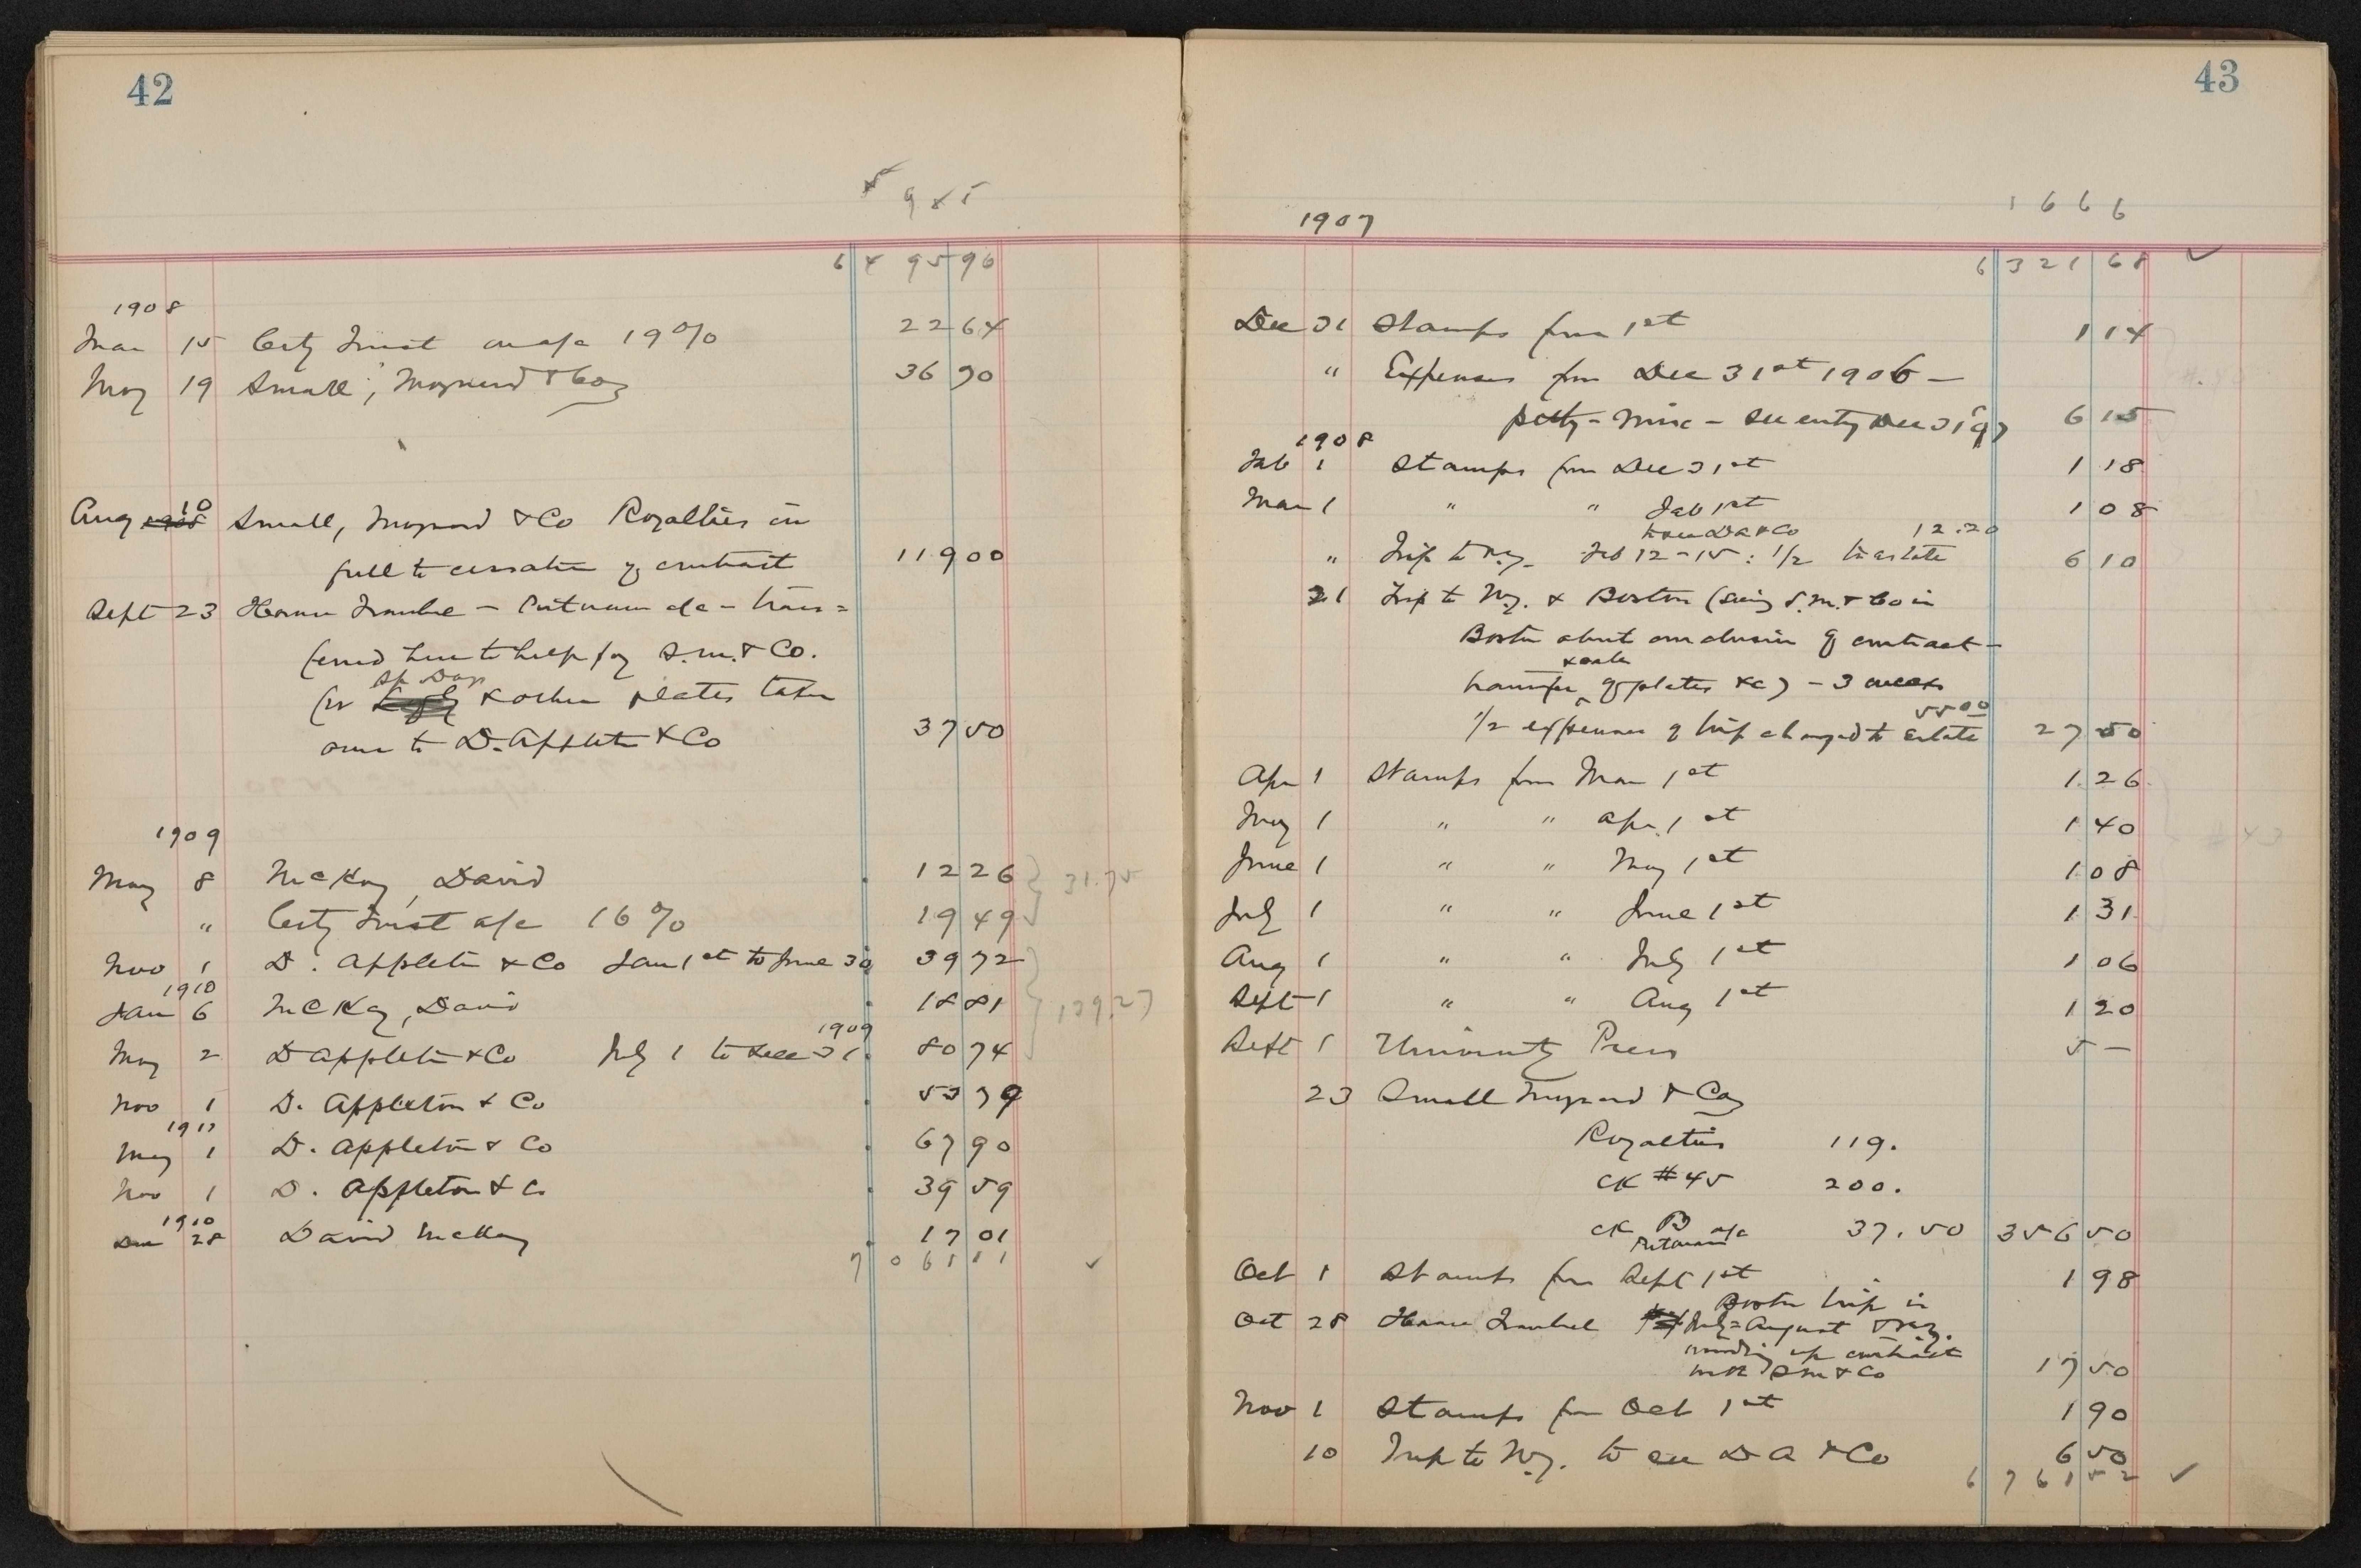 42
985
6495 96
1908
Mar 15 City Trust on a/c 19% 22 64
May 19 Small, Maynard & Coy 36 90
Aug 10 Small, Maynard & Co Royalties in
full to cessation of contract 119 00
Sept 23 Horace Traubel - Putnam a/c - trans=
ferred here to help pay S.M. & Co.
for & other plates taken
over to D. Appleton & Co 37 50
1909
May 8 McKay, David 12 26
" City Trust a/c 16% 19 49 31.75
Nov 1 D. Appleton & Co Jan 1st to June 30 39 72
1910
Jan 6 McKay, David 18 81 139.27
1909
May 2 D Appleton & Co July 1 to Dec 31 80 74
Nov 1 D. Appleton & Co 53 39
1911
May 1 D. Appleton & Co 67 90
Nov 1 D. Appleton & Co 39 59
1910
Dec 28 David McKay 17 01
7061 11 ✓
43
1666
1907
6321 68 ✓
Dec 31 Stamps from 1st 1 14
" Expenses from Dec 31st 1906 —
petty - misc - see entry Dec 31 97 6 15
1908
Feb 1 Stamps from Dec 31st 1 18
Mar 1 " " Feb 1st 1 08
to see D A & Co 12.20
" Trip to N.Y. Feb 12-15: 1/2 to estate 6 10
31 Trip to N.Y. & Boston (seeing S.M. & Co in
Boston about conclusion of contract -
transfer of plates &c) - 3 weeks
55 00
1/2 expenses of trip charged to Estate 27 50
Apr 1 Stamps from Mar 1st 1 26
May 1 " " Apr. 1st 1 40
June 1 " " May 1st 1 08
July 1 " " June 1st 1 31
Aug 1 " " July 1st 1 06
Sept 1 " " Aug 1st 1 20
Sept 1 University Press 5 —
23 Small Maynard & Coy
Royalties 119.
CK #45 200.
CK B Putnam a/c 37.50 356 50
Oct 1 Stamps from Sept 1st 1 98
Boston trip in
Oct 28 Horace Traubel July-August & N.Y.
winding up contract
with S M & Co 17 50
Nov 1 Stamps from Oct 1st 1 90
10 Trip to N.Y. to see D A & Co 6 50
6761 52 ✓